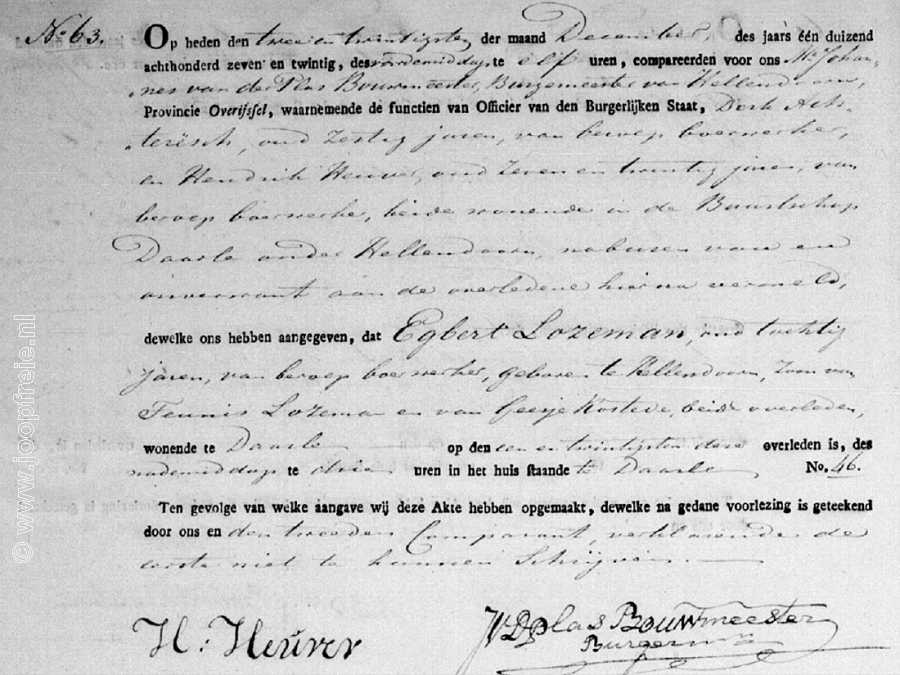 No. 63. Op heden den twee en twintigsten der maand December, des jaars één duizend
achthonderd zeven en twintig, des voordemiddags te elf uren, compareerden voor ons Mr. Johan-
nes van der Plas Bouwmeester, Burgemeester van Hellendoorn,
Provincie Overijssel, waarnemende de functien van Officier van den Burgerlijken Staat, Derk Ach-
terësch, oud Zestig jaren, van beroep boerwerker,
en Hendrik Heuver, oud Zeven en twintig jaren, van
beroep boerwerker, beide wonende in de Buurtschap
Daarle onder Hellendoorn, naburen van en
onverwant aan de overledene hier na vermeld,
dewelke ons hebben aangegeven, dat Egbert Lozeman, oud tachtig
jaren, van beroep boerwerker, geboren te Hellendoorn, Zoon van
Teunis Lozeman en van Geesje Kostede, beide overleden,
wonende te Daarle op den een en twintigsten dezer overleden is, des
nademiddags te drie uren in het huis staande te Daarle No. 46.
Ten gevolge van welke aangave wij deze Akte hebben opgemaakt, dewelke na gedane voorlezing is geteekend
door ons en den tweeden Comparant, verklarende de
eerste niet te kunnen Schrijven.
H: Heuver
JVDPlas Bouwmeester
Burgerm
© www.loopfreie.nl